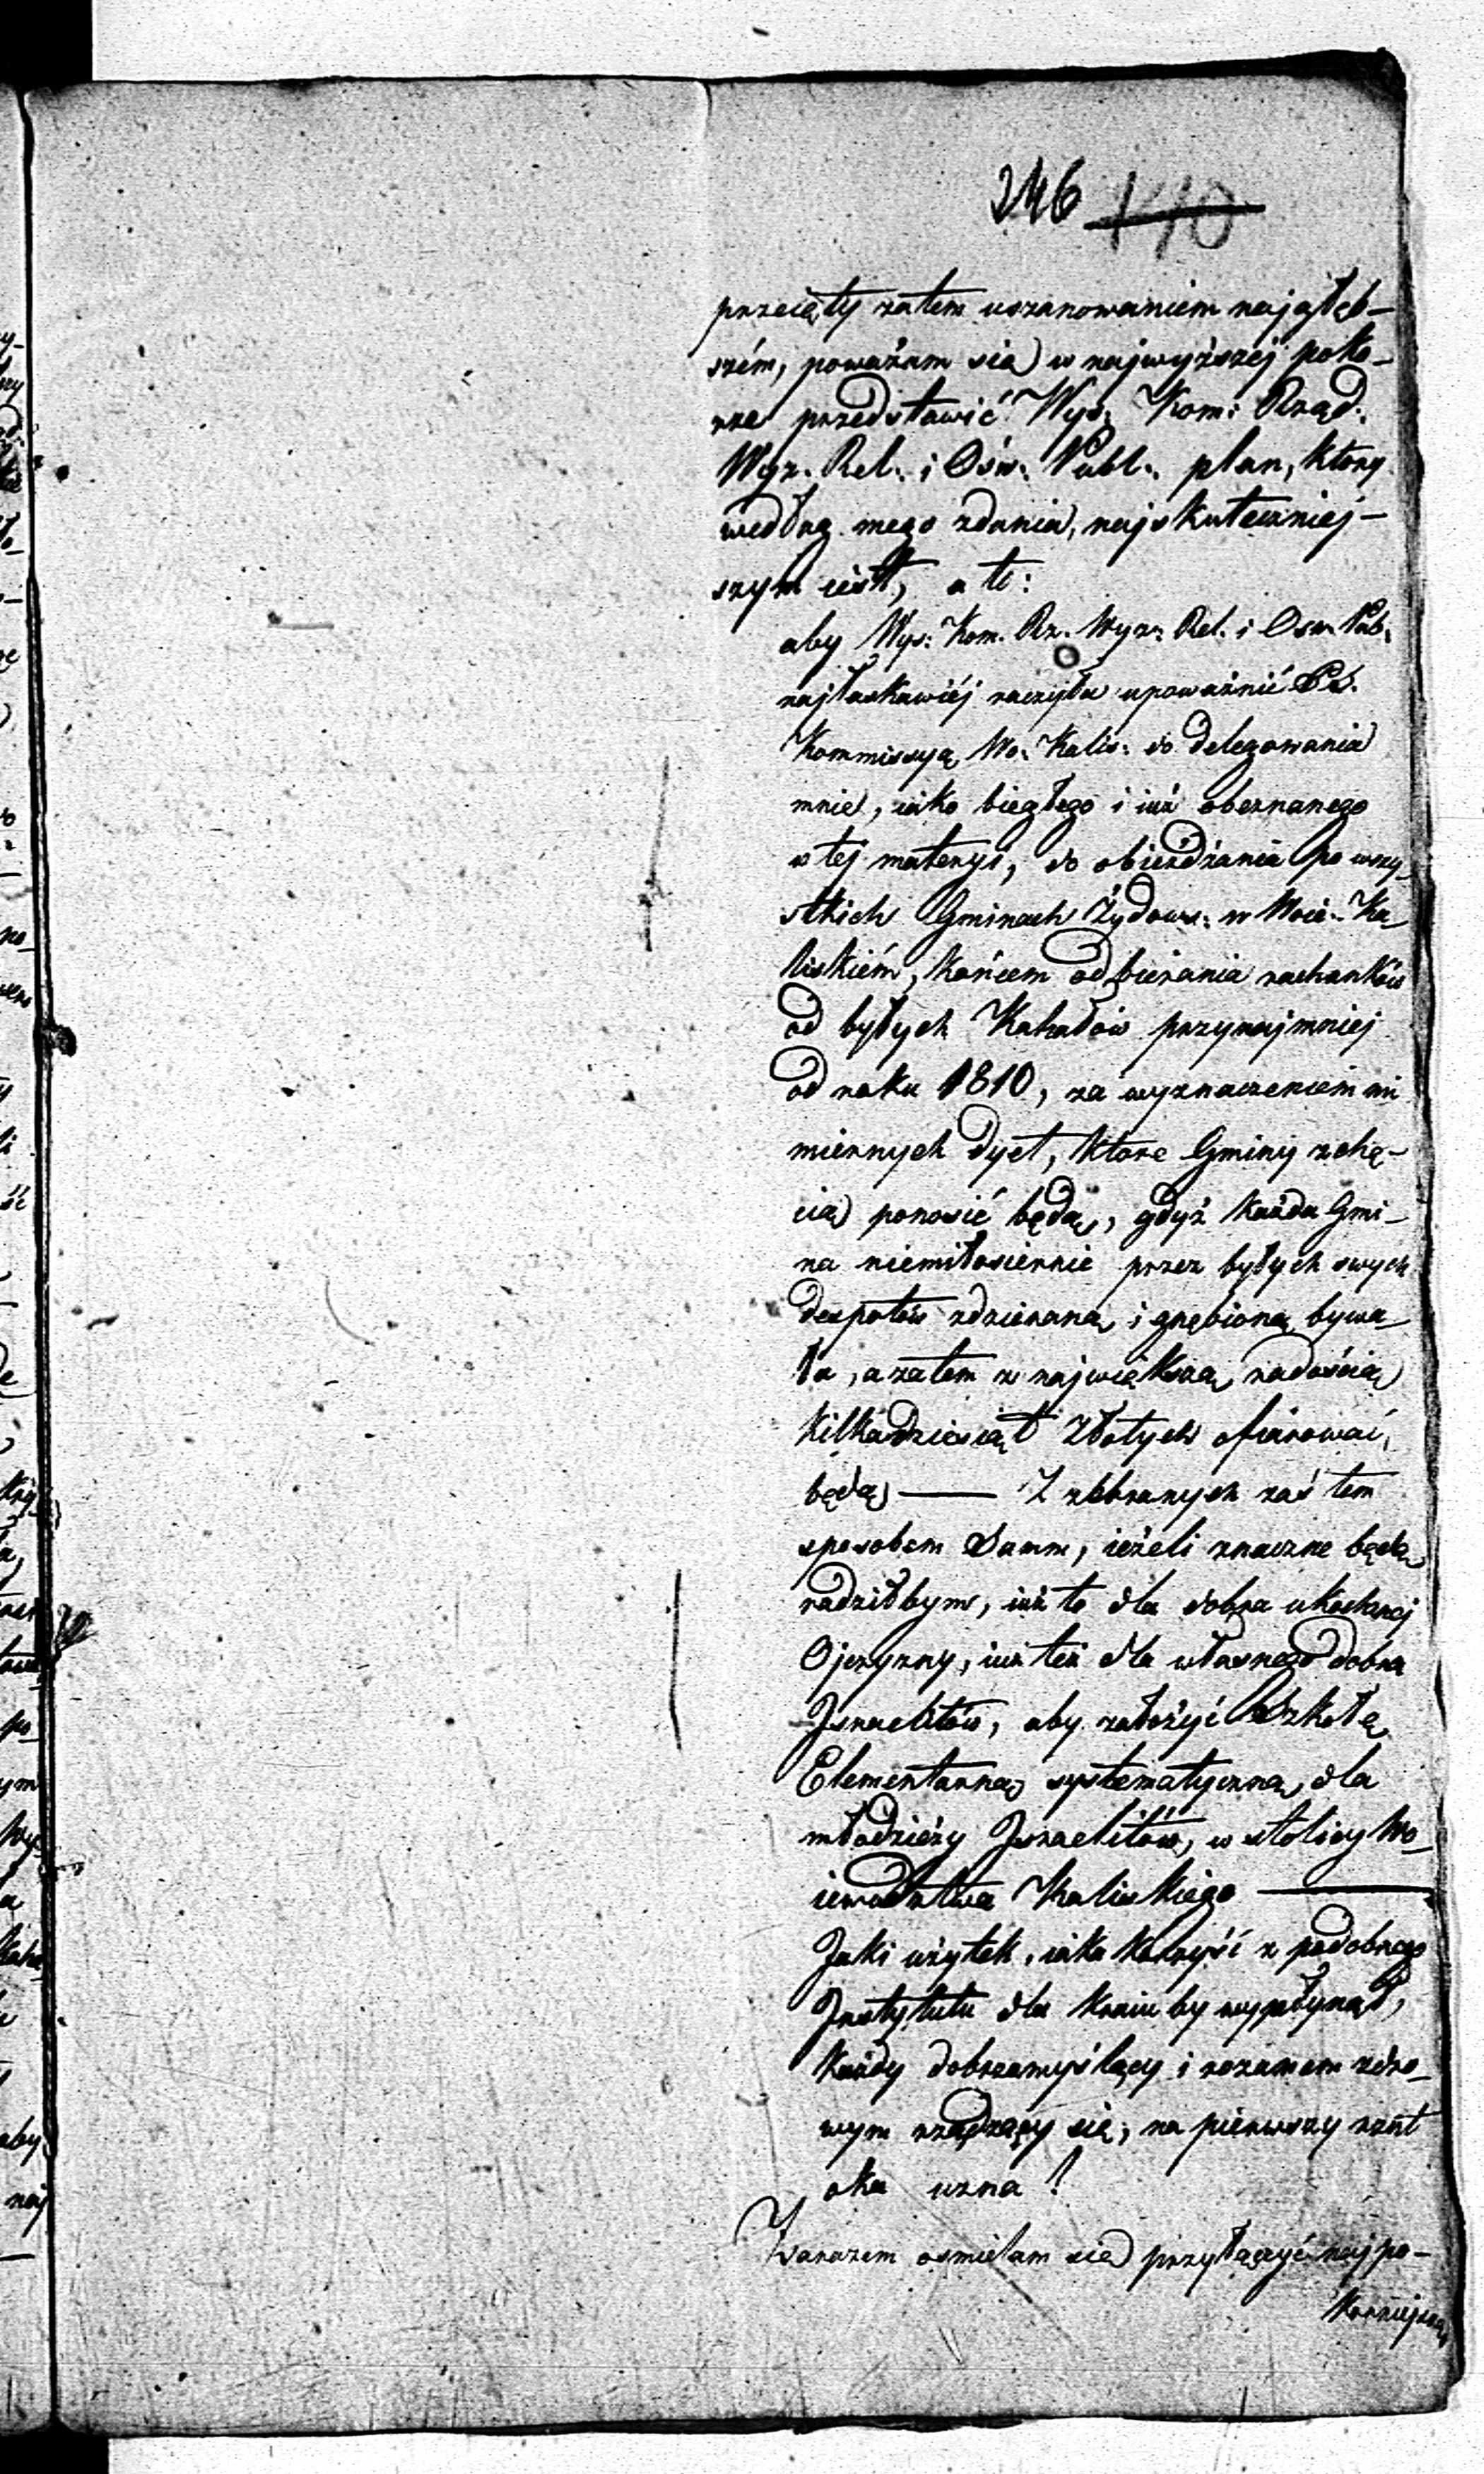 246 140
przecięty zatem uszanowaniem najgłęb-
szém, poważam się w najwyższej poko-
rze przedstawić Wys: Kom: Rząd:
Wyz: Rel: i Ośw: Publ:, plan, który
według mego zdania, najskuteczniej-
szym iest, a to:
aby Wys: Kom. Rz. Wyz: Rel. i Osw. Pub.
najłaskawiéj raczyła upoważnić
Kommissyą Wo: Kalis: do delegowania
mnie, iako biegłego i iuż obeznanego
w tej materyi, do obieżdżania po wszy-
stkich Gminach Żydows: w Woie: Ka-
liskiém, końcem odbierania rachunków
od byłych Kahałów przynajmniej
od roku 1810, za wyznaczeniem mi
miernych dyet, które Gminy z chę-
cią ponosić będą, gdyż każda Gmi-
na niemiłosiernie przez byłych swych
despotów zdzieraną i gnębioną bywa-
ła, a zatem z największą radością
kilkadziesiąt Złotych ofiarować
będą —— Z zebranych zaś tem
sposobem Summ, ieżeli znaczne będą
radziłbym, iuż to dla dobra ukochanej
Ojczyzny, iuż też dla własnego dobra
Jsraelitów, aby założyć Szkołę
Elementarną systematyczną, dla
młodzieży Jsraelitów, w stolicy Wo-
iewództwa Kaliskiego ———
Jaki użytek, iaka korzyść z podobnego
Jnstytutu dla kraiu by wypłynął,
każdy dobrzemyślący i rozumem zdro-
wym rządzący się, na pierwszy rzut
oka uzna!
Zarazem osmielam się przyłączyć najpo-
korniejszą